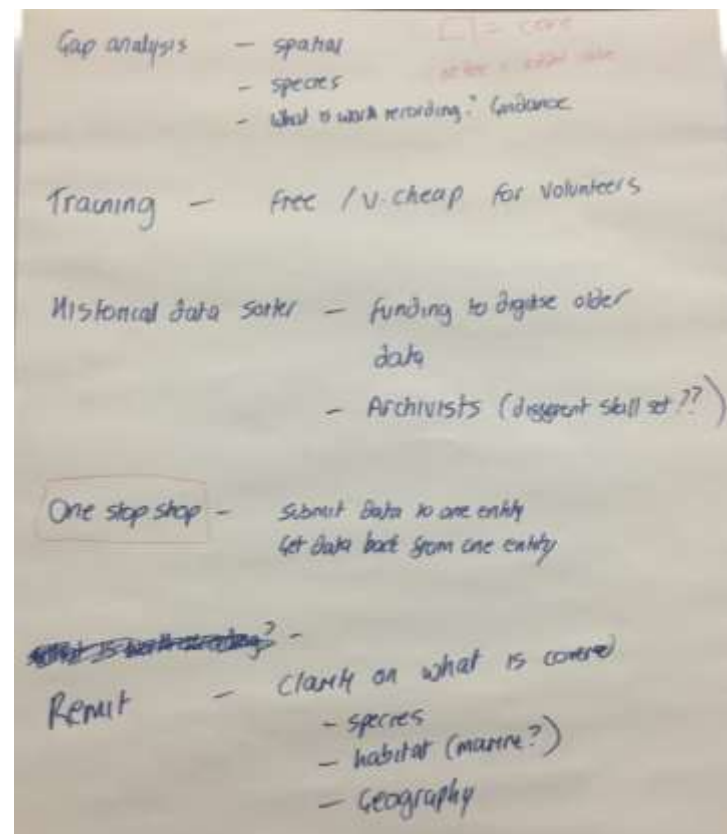 Gap analysis - spatial
□ = core
- species
- What is worth recording? Guidance
Training - Free / V. cheap for volunteers
Historical data sorter - funding to digitise older
data
- Archivists (different skill set ??)
One stop shop - Submit Data to one entity
Get Data back from one entity
What is worth recording? -
Remit - Clarity on what is covered
- species
- habitat (marine?)
- Geography